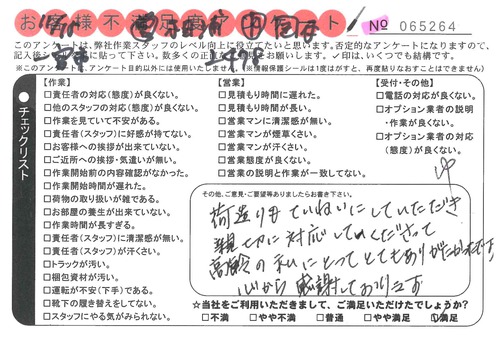 お客様不満足度アンケート
No 065264
このアンケートは、弊社作業スタッフのレベル向上に役立てたいと思います。否定的なアンケートになりますので、
に貼って下さい。✓印は、いくつでも結構です。
※このアンケートは、アンケート目的以外には使用いたしません。(※情報保護シールは1度はがすと、再度貼りなおすことはできません)
●チェックリスト
【作業】
□責任者の対応(態度)が良くない。
□他のスタッフの対応(態度)が良くない。
□作業を見ていて不安がある。
□責任者(スタッフ)に好感が持てない。
□お客様への挨拶が出来ていない。
□ご近所への挨拶・気遣いが無い。
□作業開始前の内容確認がなかった。
□作業開始時間が遅れた。
□荷物の取り扱いが雑である。
□お部屋の養生が出来ていない。
□作業時間が長すぎる。
□責任者(スタッフ)に清潔感が無い。
□責任者(スタッフ)が汗くさい。
□トラックが汚い。
□梱包資材が汚い。
□運転が不安(下手)である。
□靴下の履き替えをしてない。
□スタッフにやる気がみられない。
【営業】
□見積もり時間に遅れた。
□見積もり時間が長い。
□営業マンに清潔感が無い。
□営業マンが煙草くさい。
□営業マンが汗くさい。
□営業態度が良くない。
□営業の説明と作業が一致してない。
【受付・その他】
□電話の対応が良くない。
□オプション業者の説明
・作業が良くない。
□オプション業者の対応
(態度)が良くない。
その他、ご意見・ご要望等ありましたらお書き下さい。
荷造りもていねいにしていただき
親切に対応してくださって
高齢の私にとってとてもありがたかったです
心から感謝しております
☆当社をご利用いただきまして、ご満足いただけたでしょうか?
□不満 □やや不満 □普通 □やや満足 ☑満足